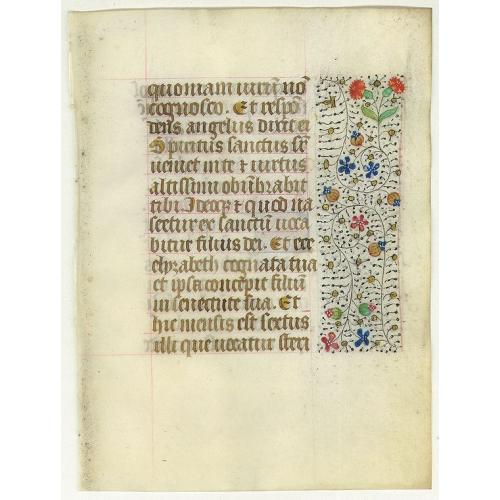 quoniam virū nō
cognosco. Et respō
dens angelus dixit ei
Spiritus sanctus sū
veniet in te ⁊ virtus
altissimi obūbrabit
tibi. Ideoqȝ ⁊ quod na
scetur ex te sanctū voca
bitur filius dei. Et ecce
elyzabeth cognata tua
et ipsa concepit filiū
in senectute sua. Et
hic mensis est sextus
illi que vocatur steri